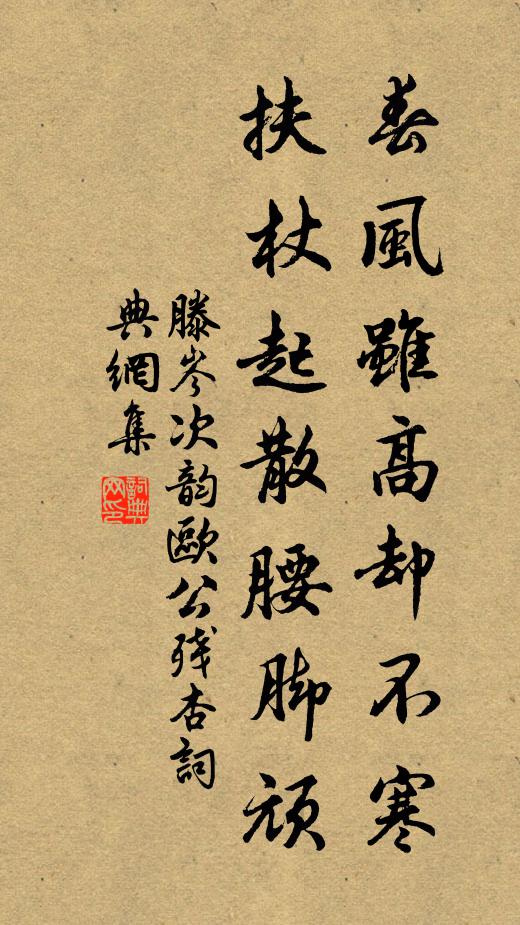 春風雖高却不寒
扶杖起散腰脚頑
滕岑次韵歐公殘杏詞
典網集
詞典网印